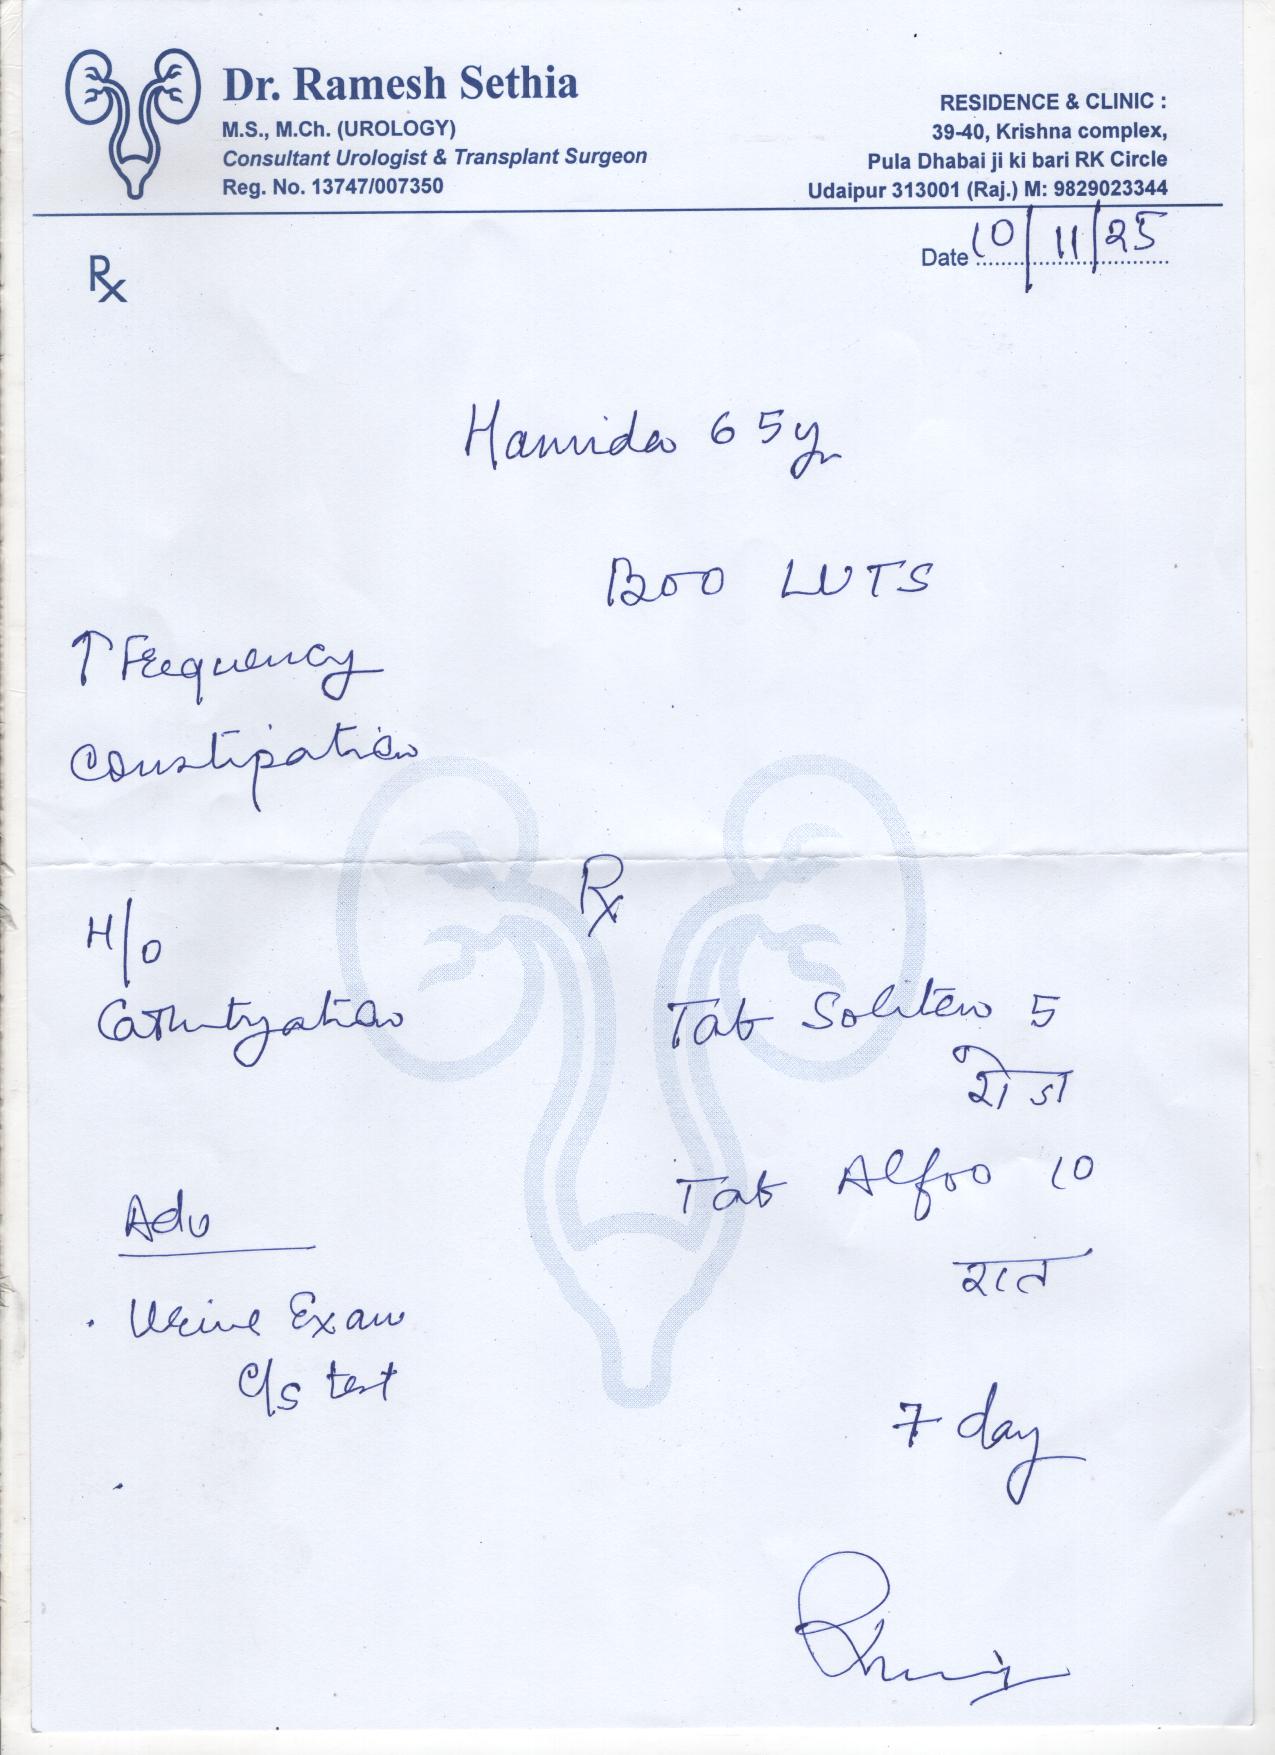 Dr. Ramesh Sethia
M.S., M.Ch. (UROLOGY)
Consultant Urologist & Transplant Surgeon
Reg. No. 13747/007350
RESIDENCE & CLINIC :
39-40, Krishna complex,
Pula Dhabai ji ki bari RK Circle
Udaipur 313001 (Raj.) M: 9829023344
Date 10/11/25
Rx
Hamida 65y
BOO LUTS
↑ Frequency
Constipation
H/O
Rx
Tab Soliten 5
रोज
Tab Alfoo 10
रात
Adv
. Urine Exam
C/S test
7 day